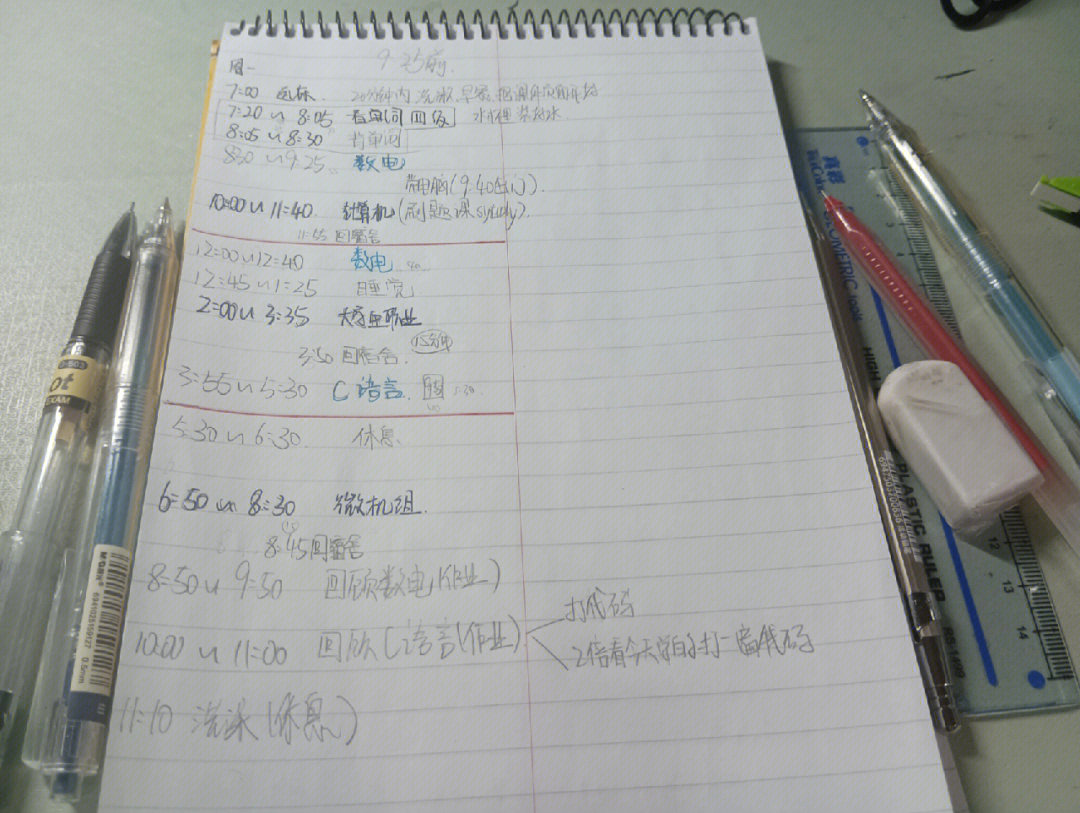 9.25前.
周一
7:00 起床. 20分钟内 洗漱.早餐.
7:20 ~ 8:05 看单词 四级 水杯里装好水
8:05 ~ 8:30 背单词
8:30 ~ 9:25 数电
带电脑(9:40出门).
10:00 ~ 11:40 计算机(刷题课
11:55 回宿舍
12:00 ~ 12:40 数电 40
12:45 ~ 1:25 睡觉
2:00 ~ 3:35
3:50 回宿舍. 15分钟
3:55 ~ 5:30 C语言.
5:30 ~ 6:30. 休息
6:50 ~ 8:30 微机组.
8:45回宿舍
8:50 ~ 9:50 回顾数电(作业)
打代码
10:00 ~ 11:00 回顾C语言(作业)
2倍看今天学的打一遍代码
11:10 洗澡(休息)
M&G
6941025159127
0.5mm
真彩
TrueColor
GEOMETRIC
HIGH
PLASTIC RULER
12
13
14